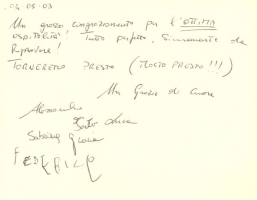 03-05-03
Un grosso ringraziamento per l'OTTIMA
OSPITALITA'! Tutto perfetto, Sicuramente da
Riprovare!
TORNEREMO PRESTO (MOLTO PRESTO!!!)
Un Grazie di Cuore
Alessandro
Luca
Sabrina
FEDERICO